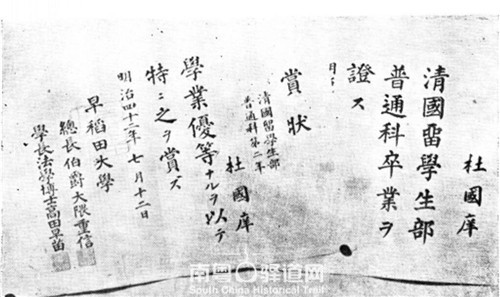 杜國庠
清國畱學生部
普通科卒業ヲ
證ス
賞状
清國留學生部
普通科第二年
杜國庠
學業優等ナルヲ以テ
特ニ之ヲ賞ス
明治四十三年七月十二日
早稻田大學
總長伯爵大隈重信
學長法學博士高田早苗
南粤驿道网
South China Historical Trail